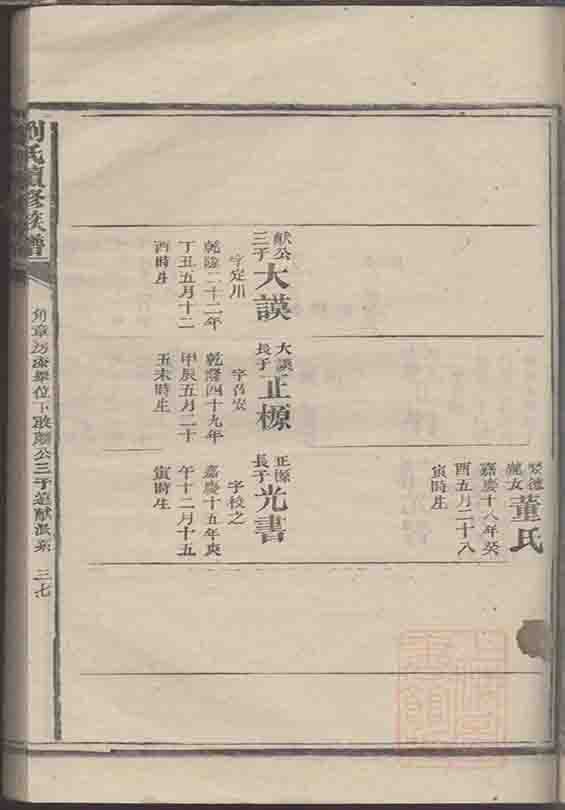 娶德
處女
董氏
嘉慶十八年癸
酉五月二十八
寅時生
獻公
三子
大謨
字定川
乾隆二十二年
丁丑五月十二
酉時生
大謨
長子
正㮤
字召安
乾隆四十九年
甲辰五月二十
五未時生
正㮤
長子
光書
字校之
嘉慶十五年庚
午十二月十五
寅時生
劉氏續修族譜
公三子
獻派系
三七